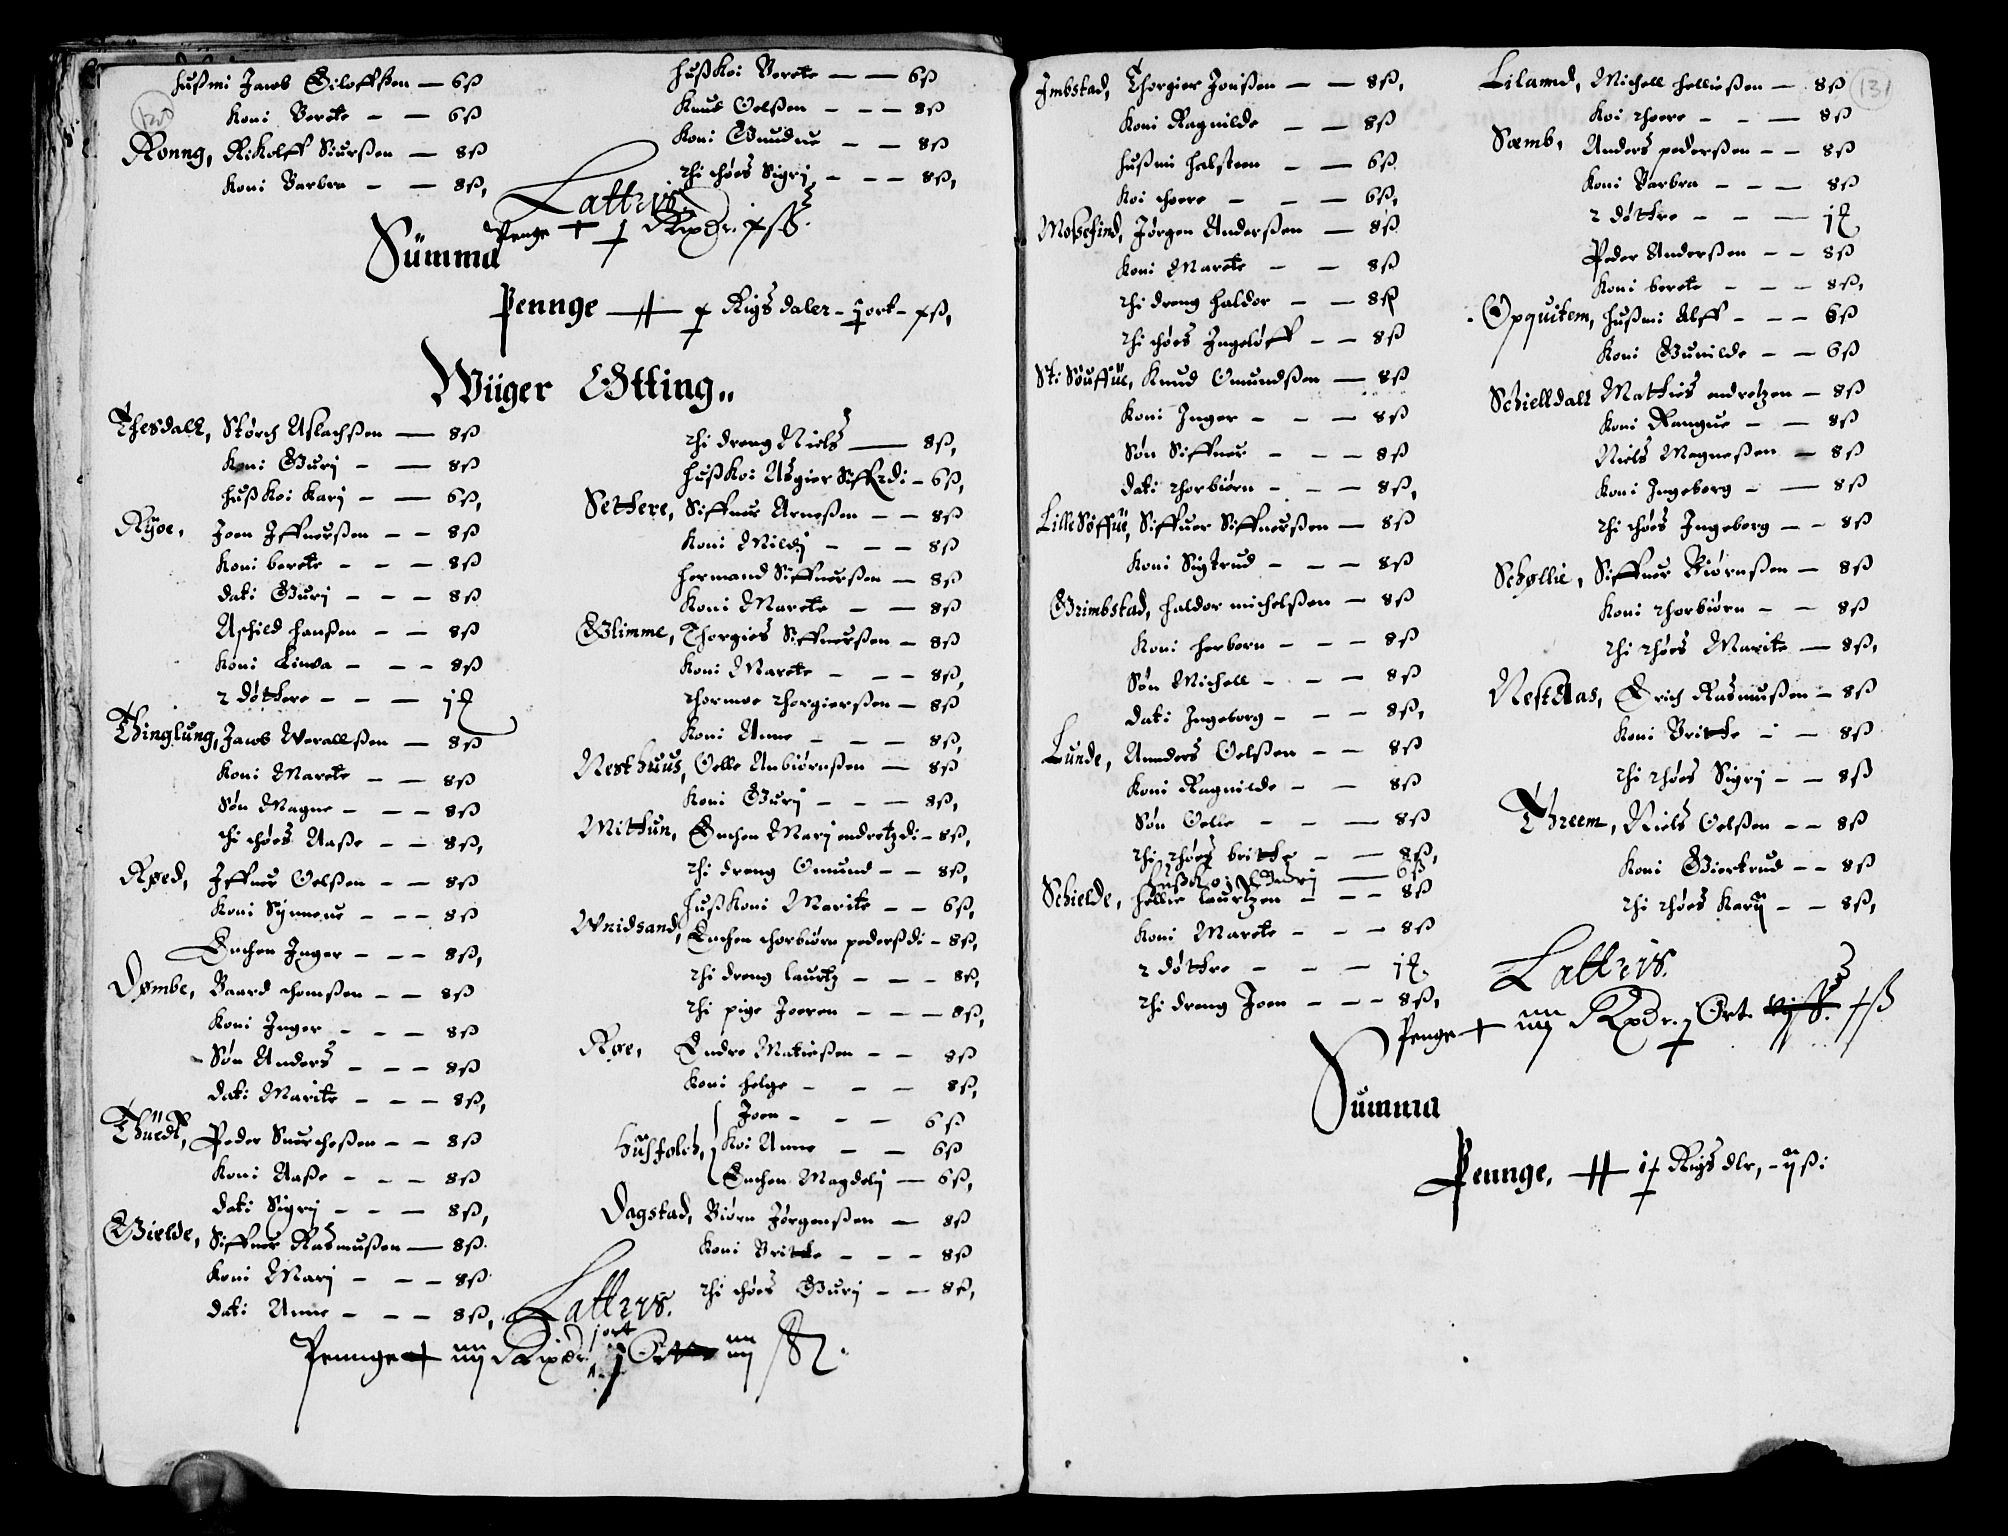 hußmi Jacob Eiloffßen — 6ß
Koni Berete — — 6ß
Ronng, Rikolff Siurßen — 8ß
Koni Barbra — — 8ß,
hußkoi Berete — — 6ß
Knud Oelßen — — — 8ß
Koni Gundue — — 8ß
thi thøes Sigrj — — — 8ß,
Latteris.
Penge
Summa
Pennge Rigsdaler - j ort -
Wiiger Otting,,
Thesdall, Størch Aslachßen — 8ß
Koni Gurj — — 8ß
hußkoi Karj — — 6ß,
Rÿoe, Joen Iffuerßen — — 8ß
Koni berete — — — 8ß
dati Gurj — — — 8ß
Aschild Hanßen — — 8ß
Koni Linda — — — 8ß
2 døttere — — —
Thinglung, Jacob Werallßen — 8ß
Koni Marete — — 8ß
Søn Magne — — — 8ß
thi thøes Aaße — — 8ß,
Røed, Iffuer Oelßen — — 8ß
Koni Sÿnneue — — — 8ß
Enchen Inger — — — 8ß,
Dømbe, Baard thomßen — — 8ß
Koni Inger — — — 8ß
Søn Anders — — — 8ß
dati Marite — — — 8ß,
Thuedt, Peder Snercheßen — — 8ß
Koni Aaße — — — 8ß
dati Sigrj — — — 8ß,
Gielde, Siffuer Rasmußen — 8ß.
Koni Marj — — — 8ß
dati Anne — — — 8ß,
thi dreng Niels — 8ß,
hußkoi Asgier Siffr di — 6ß,
Settere, Siffuer Arneßen — — 8ß
Koni Mildj — — — 8ß
Hermand Siffuerßen — 8ß
Koni Marete — — 8ß
Glimme, Thorgies Siffuerßen — 8ß
Koni Marete — — — 8ß,
thormoe thorgierßen — 8ß
Koni Anne — — — 8ß,
Nesthuus, Oelle Anbiørnßen — 8ß
Koni Gurj — — — 8ß,
Mittun, Enchen Marj endretz di — 8ß,
thi dreng Omund — — 8ß,
hußkoni Marite — — 6ß,
Wnidsand, Enchen thorbiøru pederß di — 8ß,
thi dreng laurtz — — — 8ß,
thi pige Joeren — — — 8ß,
Røe, Endre Matießen — — 8ß
Koni helge — — — 8ß,
Joen — — — 6ß
Husfolch, Koi Anne — — 6ß
Enchen Magdelj — 6ß,
Dagstad, Biørn Jørgenßen — 8ß
Koni Britte — — — 8ß
thi thøes Gurj — — 8ß,
Latteris.
jort
Pennge
Imbstad, Thorgier Jonßen — — 8ß,
Koni Ragnilde — — 8ß
hußmi halsteen — — 6ß
Koi thore — — — 6ß,
Moßefind, Jørgen Anderßen — 8ß
Koni Marete — — 8ß
thi dreng haldor — — 8ß
thi thøes Ingeløff — — 8ß
St: Søuffue, Knud Omundßen — 8ß
Koni Inger — — — 8ß
Søn Siffuer — — — 8ß
dati thorbiørn — — — 8ß,
Lille Søffue, Siffuer Siffuerßen — 8ß
Koni Sigtrud — — — 8ß
Grimbstad, haldor michelßen — 8ß
Koni herborn — — — 8ß
Søn Michell — — — 8ß
dati Ingeborg — — — 8ß,
Lunde, Annders Oelßen — — 8ß
Koni Ragnilde — — 8ß
Søn Oelle — — — 8ß
thi thøes britte — — 8ß,
hußkoj — 6ß
Schielde, hellie laurtzen — — — 8ß
Koni Marete — — — 8ß
2 døttre — — —
thi dreng Joen — — — 8ß,
131
Lilamd, Michell helließen — 8ß
Koi thore — — — 8ß
Sæmb, Anders pederßen — — 8ß
Koni Barbra — — — 8ß
2 døttre — — —
Peder Anderßen — — 8ß
Koni berete — — — 8ß,
Opquitem, hußmi Alff — — — 6ß
Koni Gunilde — — 6ß
Schielldall Mattis endretzen — 8ß
Koni Rangue — — 8ß
Niels Magneßen — 8ß
Koni Ingeborg — — 8ß
thi thøes Ingeborg — — 8ß
Schøllie, Siffuer Biørnßen — 8ß
Koni thorbiørn — — 8ß
thi thøes Marite — 8ß,
NestAas, Erich Rasmußen — 8ß
Koni Britte — — 8ß
thi thøes Sigrj — — 8ß
Threem, Niels Oelßen — — 8ß
Koni Giertrud — — 8ß
thi thøes Karÿ — — 8ß,
Latteris.
Penge Ort
Summa
Pennge, Rigsdlr,